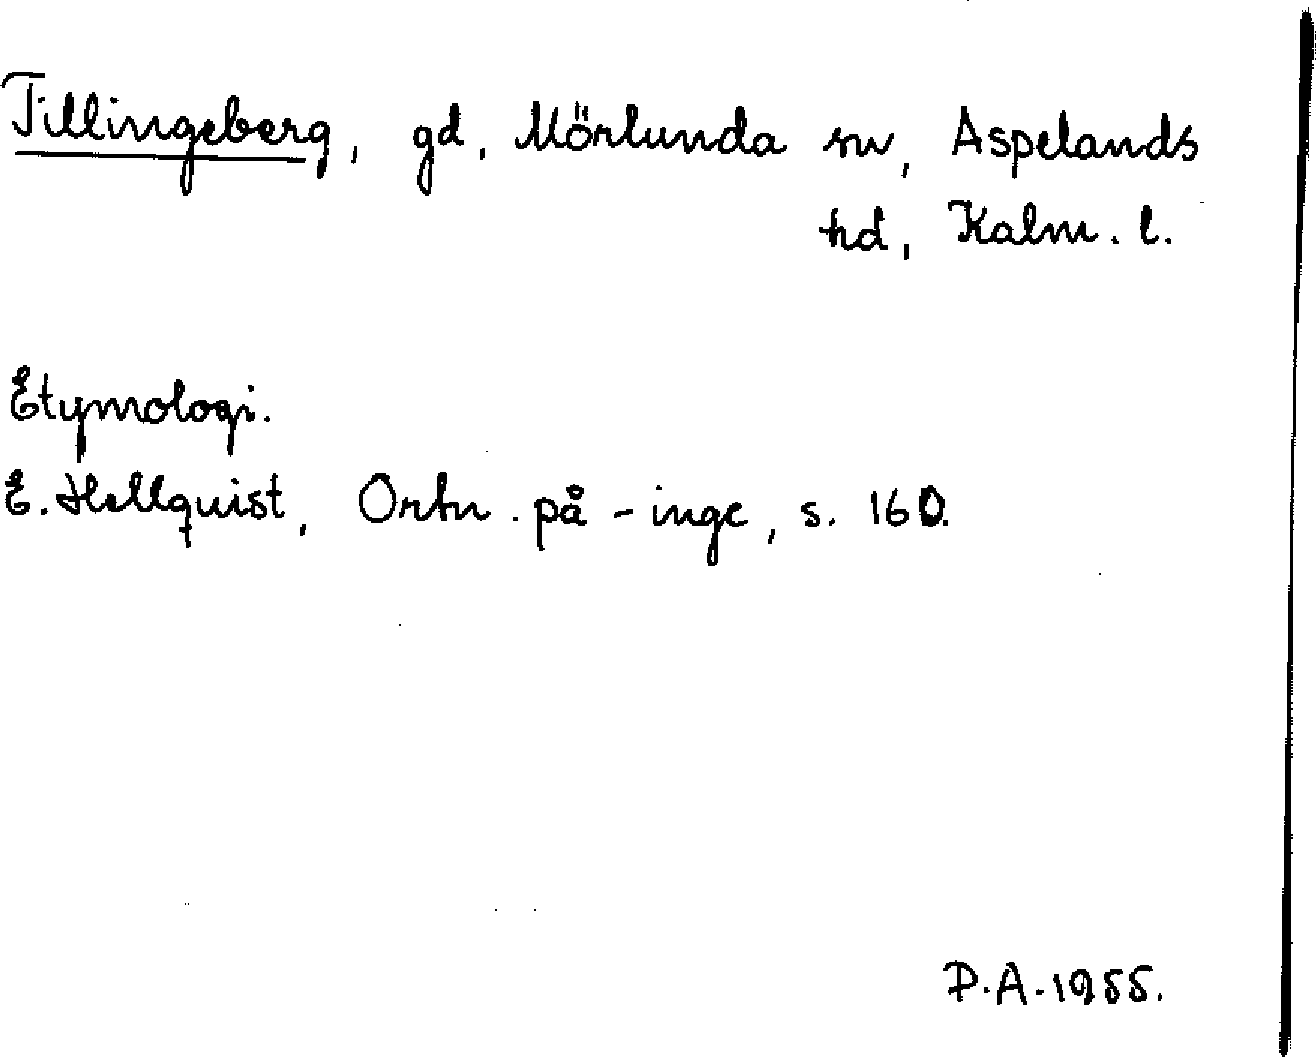 Tillingeberg, gd, Mörlunda sn, Aspelands
hd, Kalm. l.
Etymologi.
E. Hellquist, Ortn. på -inge, s. 160.
P.A. 1955.